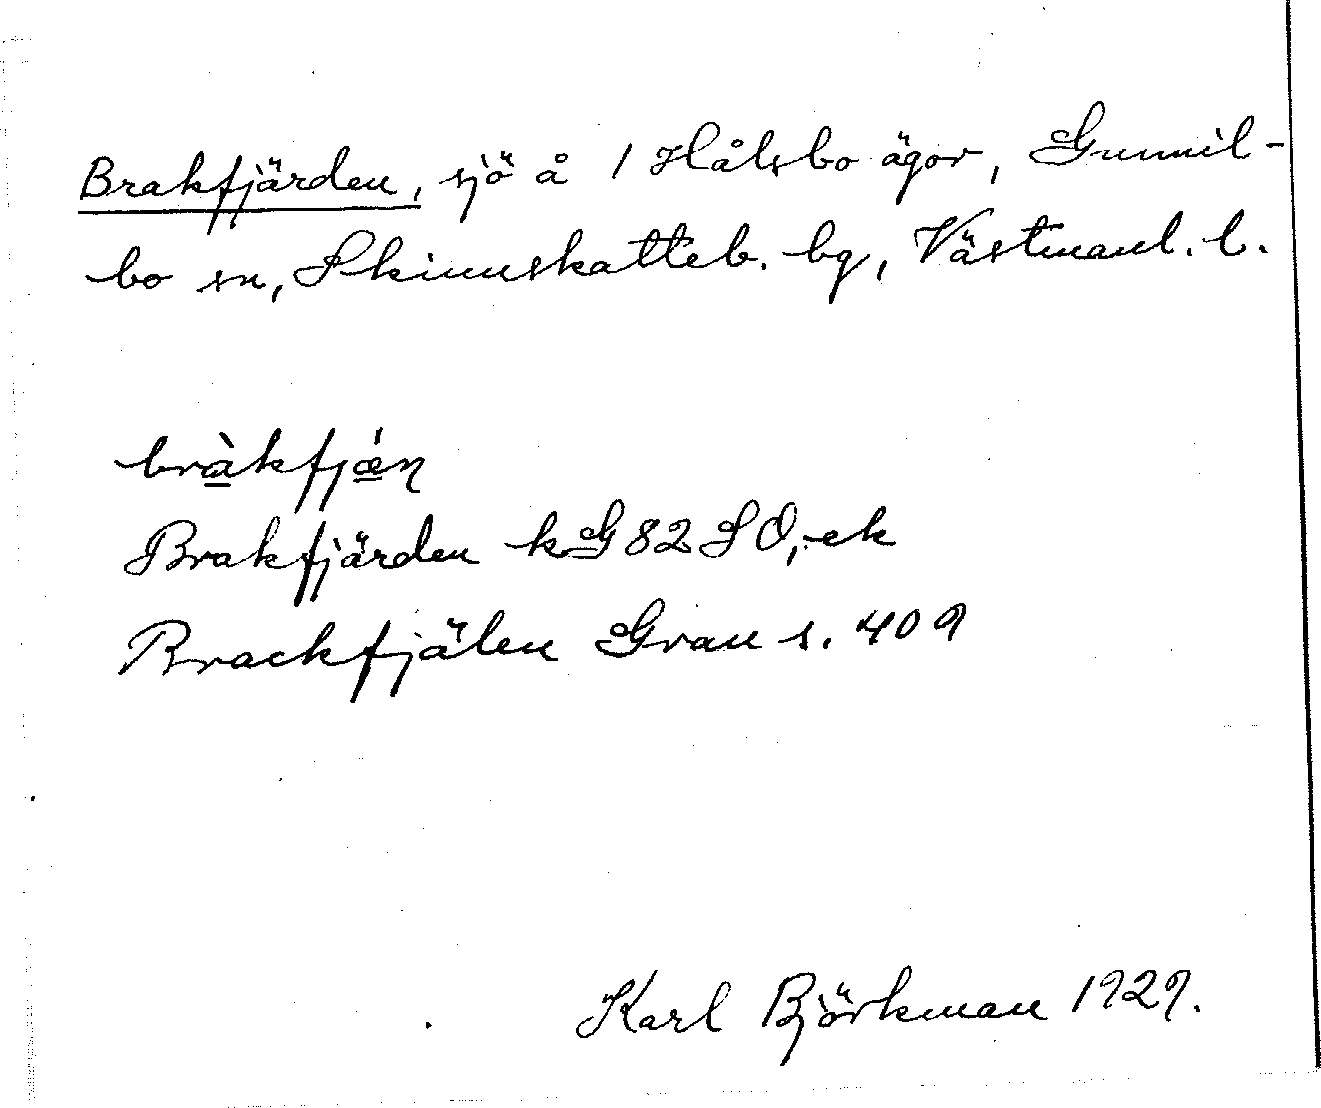 Brakfjärden, sjö å 1 Hålsbo ägor, Gunnil-
bo sn, Skinnskatteb. bg, Västmanl. l.
bràkfjǽn
Brakfjärden kG 82 SO, ek
Brackfjälen Grau s. 409
Karl Björkman 1929.